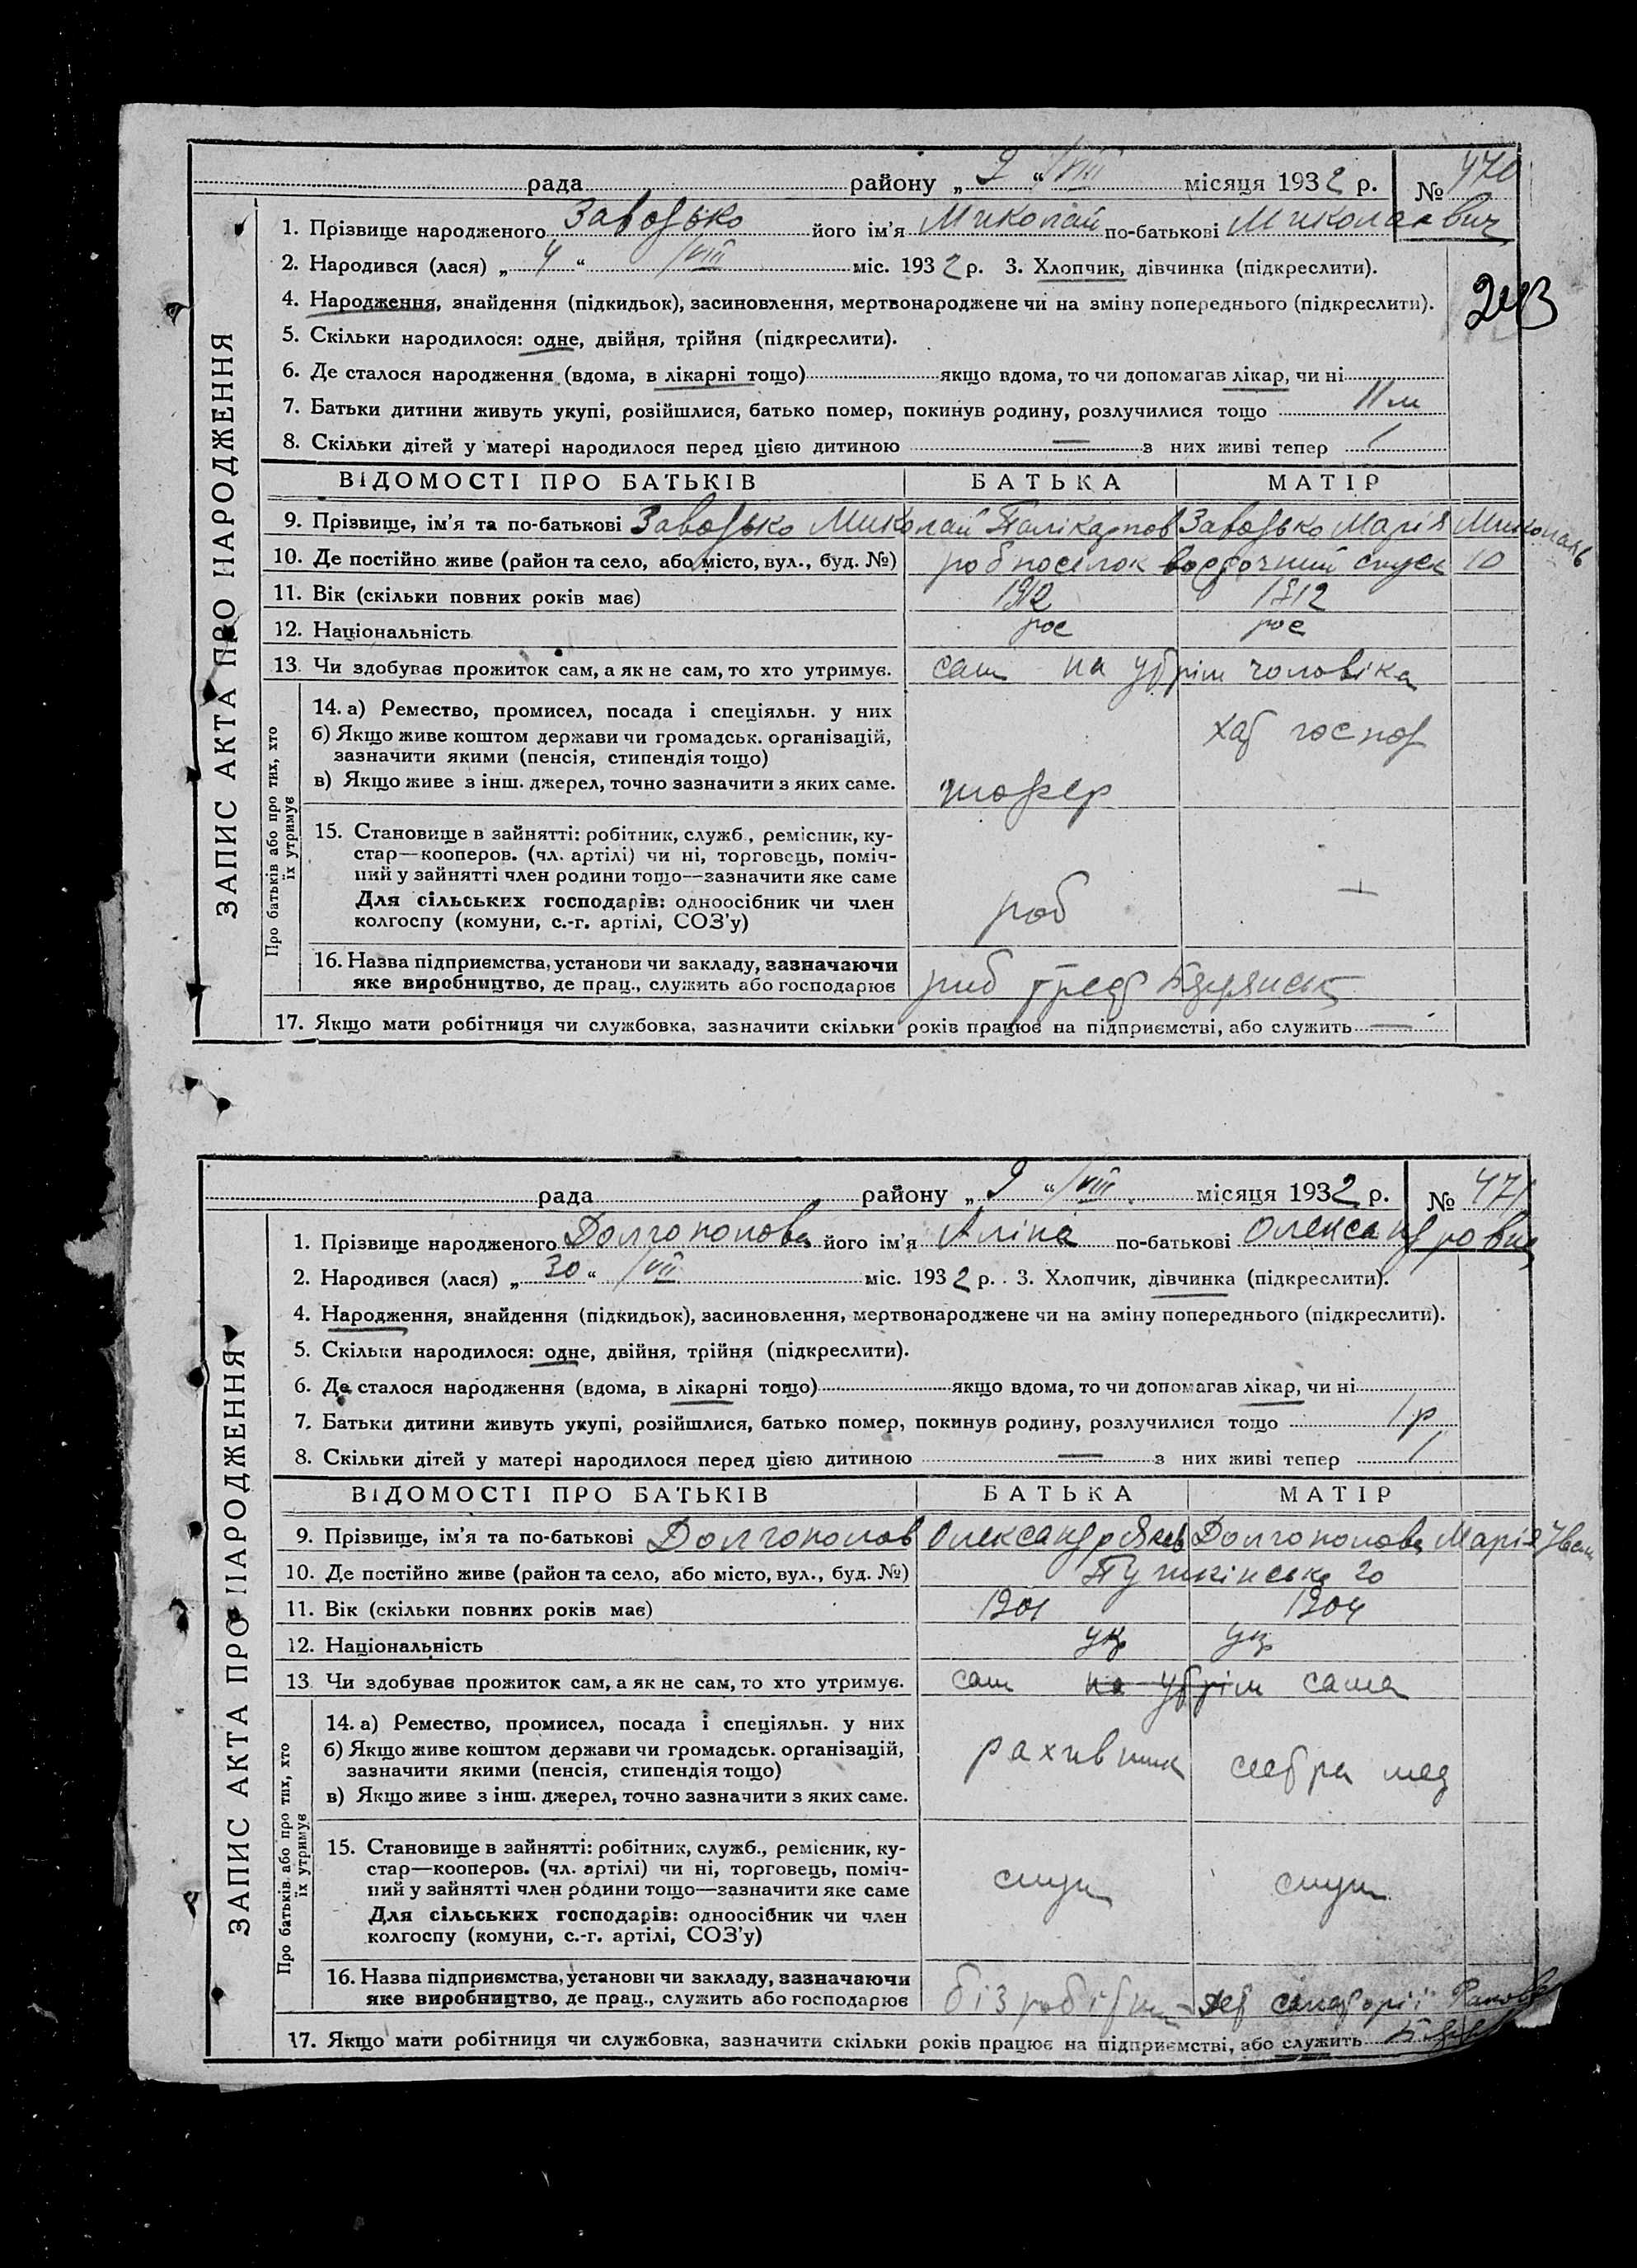 рада района „ 9 “ /VIII місяця 1932 р. № 470
1. Прізвище народженого Заводько його ім'я Миколай по-батькові Миколаевич
2. Народився (лася) „ 4 “ /VIII міс. 1932 р. 3. Хлопчик, дівчинка (підкреслити).
243
4. Народження, знайдення (підкидьок), засиновлення, мертвонароджене чи на зміну попереднього (підкреслити).
5. Скільки народилося: одне, двійня, трійня (підкреслити).
6. Де сталося народження (вдома, в лікарні тощо) якщо вдома, то чи допомагав лікар, чи ні
7. Батьки дитини живуть укупі, розійшлися, батько помер, покинув родину, розлучилися тощо 11 м
8. Скільки дітей у матері народилося перед цією дитиною — з них живі тепер 1
ЗАПИС АКТА ПРО НАРОДЖЕННЯ
ВІДОМОСТІ ПРО БАТЬКІВ БАТЬКА МАТІР
9. Прізвище, ім'я та по-батькові Заводько Миколай Палікарпов Заводько Марія Миколаев
10. Де постійно живе (район та село, або місто, вул., буд. №) роб поселок спуск 10
11. Вік (скільки повних років має) 1912 1912
12. Національність рос рос
13. Чи здобуває прожиток сам, а як не сам, то хто утримує. сам на утрім чоловіка
Про батьків або про тих, хто їх утримує
14. а) Ремество, промисел, посада і спеціяльн. у них
б) Якщо живе коштом держави чи громадськ. організацій, хат госпор
зазначити якими (пенсія, стипендія тощо)
в) Якщо живе з інш. джерел, точно зазначити з яких саме. шофер
15. Становище в зайнятті: робітник, служб., ремісник, ку-
стар—кооперов. (чл. артілі) чи ні, торговець, поміч-
ний у зайнятті член родини тощо—зазначити яке саме
Для сільських господарів: одноосібник чи член роб —
колгоспу (комуни, с.-г. артілі, СОЗ'у)
16. Назва підприємства, установи чи закладу, зазначаючи
яке виробництво, де прац., служить або господарює риб трест Бердянськ
17. Якщо мати робітниця чи службовка, зазначити скільки років працює на підприємстві, або служить —
рада району „ 9 “ /VIII місяця 1932 р. № 471
1. Прізвище народженого Долгополова його ім'я Аліна по-батькові Олександровна
2. Народився (лася) „ 30 “ /VII міс. 1932 р. 3. Хлопчик, дівчинка (підкреслити).
4. Народження, знайдення (підкидьок), засиновлення, мертвонароджене чи на зміну попереднього (підкреслити).
5. Скільки народилося: одне, двійня, трійня (підкреслити).
6. Де сталося народження (вдома, в лікарні тощо) якщо вдома, то чи допомагав лікар, чи ні
7. Батьки дитини живуть укупі, розійшлися, батько помер, покинув родину, розлучилися тощо 1 р
8. Скільки дітей у матері народилося перед цією дитиною — з них живі тепер 1
ЗАПИС АКТА ПРО НАРОДЖЕННЯ
ВІДОМОСТІ ПРО БАТЬКІВ БАТЬКА МАТІР
9. Прізвище, ім'я та по-батькові Долгополов Олександр Яков Долгополова Марія Іван
10. Де постійно живе (район та село, або місто, вул., буд. №) Пушкінська 20
11. Вік (скільки повних років має) 1901 1904
12. Національність укр укр
13. Чи здобуває прожиток сам, а як не сам, то хто утримує. сам на утрім сама
Про батьків або про тих, хто їх утримує
14. а) Ремество, промисел, посада і спеціяльн. у них
б) Якщо живе коштом держави чи громадськ. організацій, рахивник сестра мед
зазначити якими (пенсія, стипендія тощо)
в) Якщо живе з інш. джерел, точно зазначити з яких саме.
15. Становище в зайнятті: робітник, служб., ремісник, ку-
стар—кооперов. (чл. артілі) чи ні, торговець, поміч-
ний у зайнятті член родини тощо—зазначити яке саме служ служ
Для сільських господарів: одноосібник чи член
колгоспу (комуни, с.-г. артілі, СОЗ'у)
16. Назва підприємства, установи чи закладу, зазначаючи
яке виробництво, де прац., служить або господарює безробітн санаторії
17. Якщо мати робітниця чи службовка, зазначити скільки років працює на підприємстві, або служить